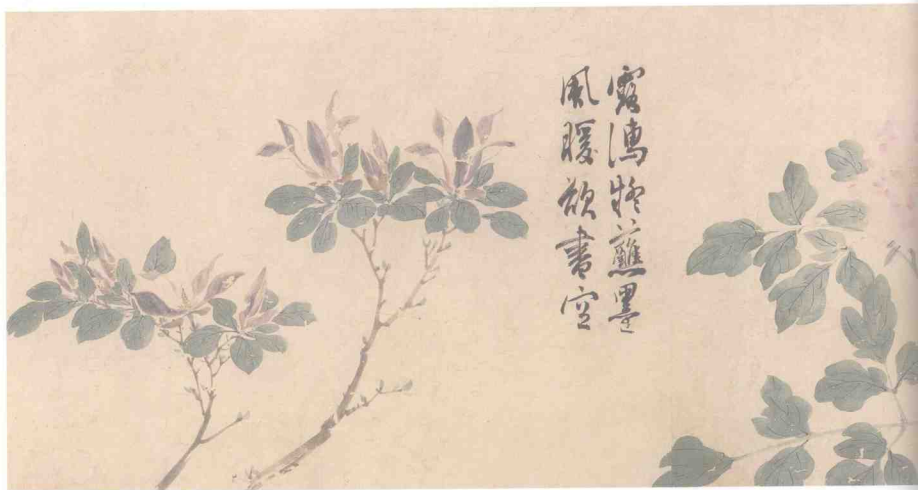 露濕將蘸墨
風暖欲書空